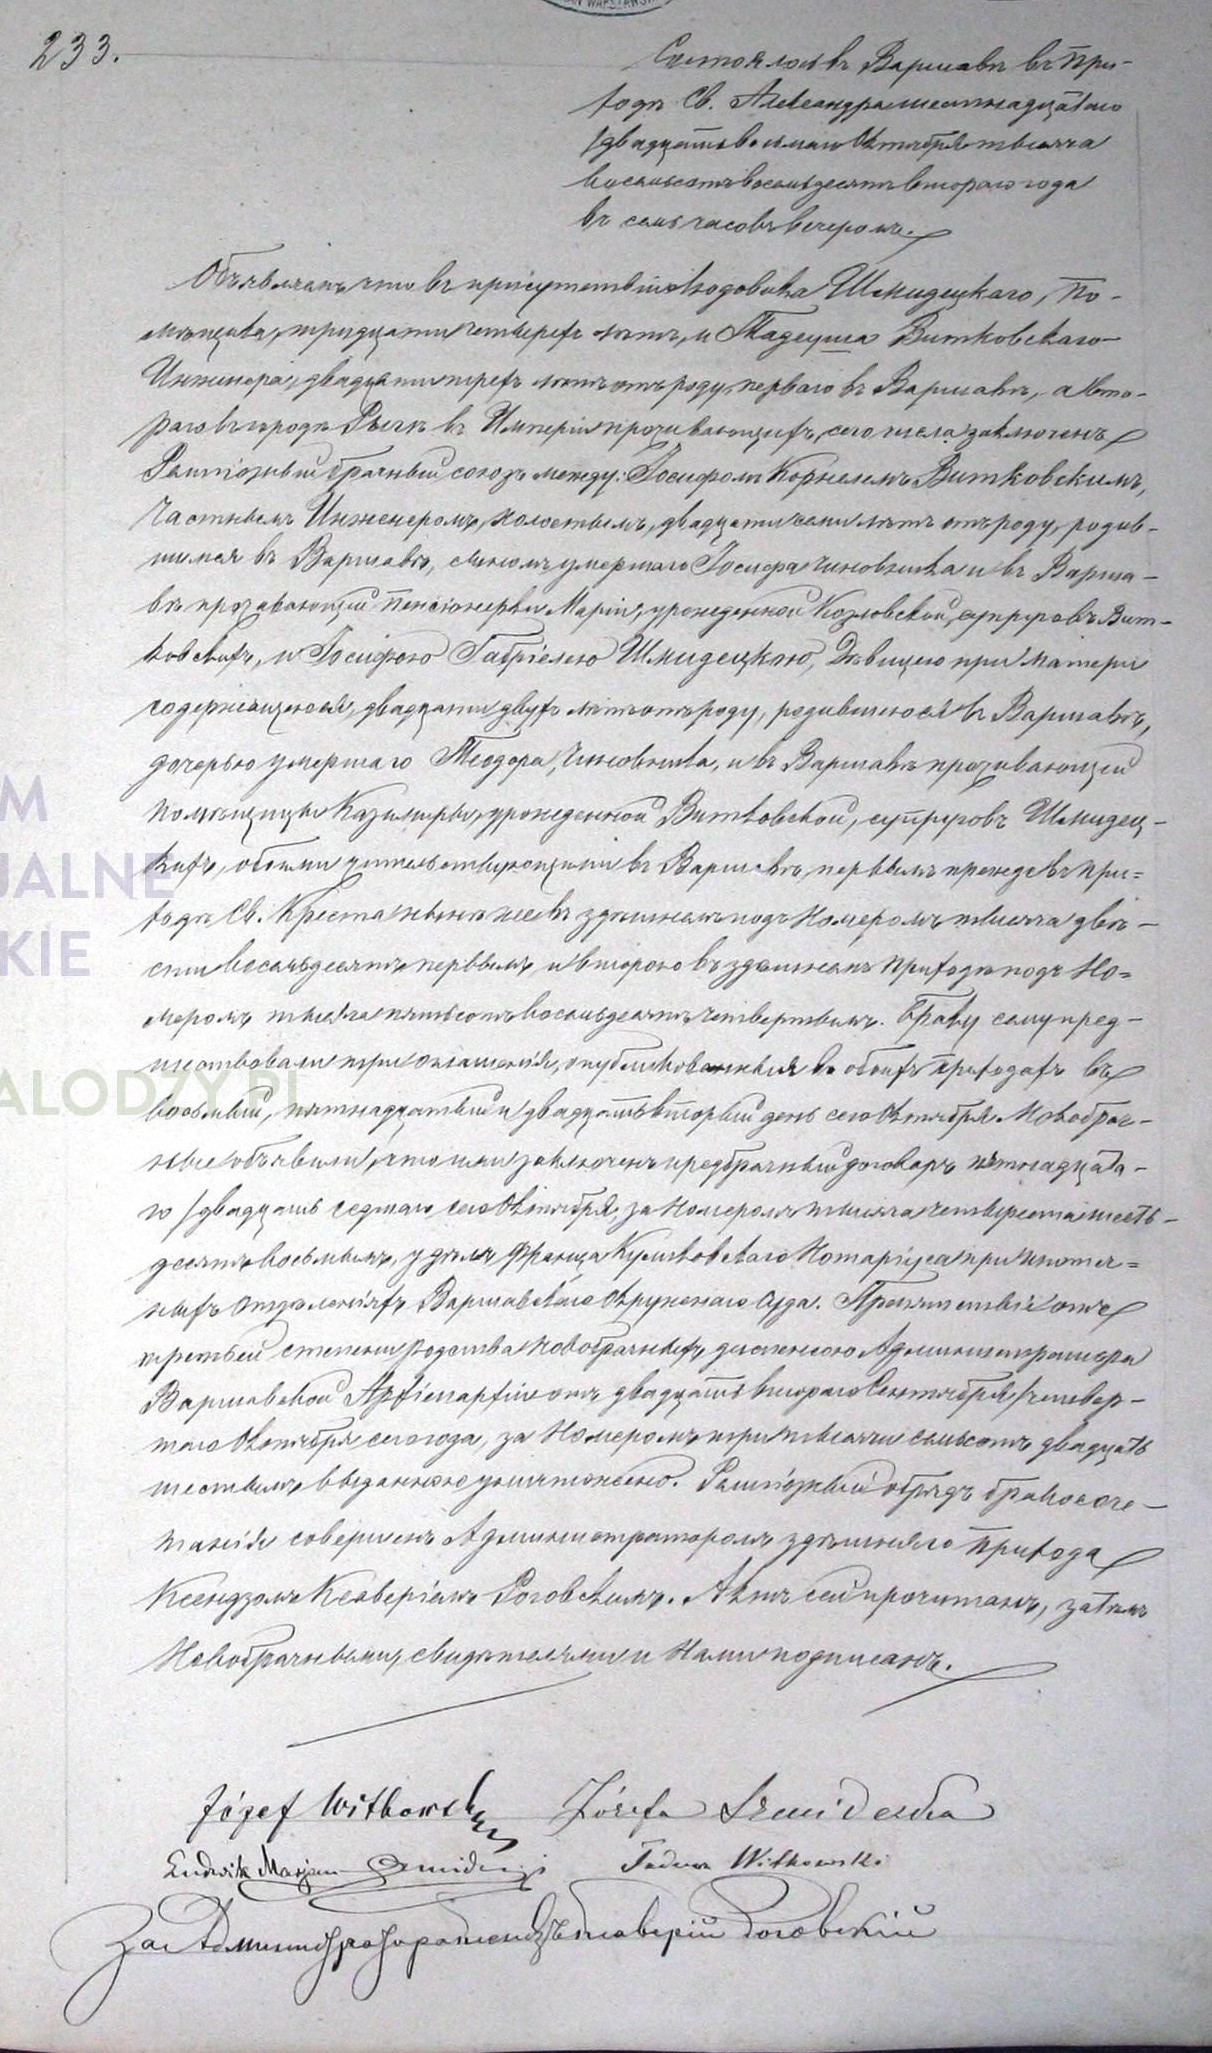 233.
Состоялось въ Варшавѣ въ При-
ходѣ Св. Александра шестнадцатаго
/двадцать восьмаго Октября тысяча
восемьсотъ восемьдесятъ втораго года
въ семь часовъ вечеромъ.
Объявляемъ что въ присутствіи Людовика Шмидецкаго, По-
мѣщика, тридцати четырехъ лѣтъ, и Тадеуша Витковскаго
Инженера, двадцати трехъ лѣтъ отъ роду, перваго въ Варшавѣ, а вто-
раго въ городѣ въ Имперіи проживающихъ, сего числа заключенъ
Религіозный брачный союзъ между: Іосифомъ Корнелемъ Витковскимъ,
Частнымъ Инженеромъ, холостымъ, двадцати семи лѣтъ отъ роду, родив-
шимся въ Варшавѣ, сыномъ умершаго Іосифа чиновника и въ Варша-
вѣ проживающей Пенсіонерки Маріи, урожденной Козловской, супруговъ Вит-
ковскихъ, и Іосифою Габріелею Шмидецкою, Дѣвицею при матери
содержащеюся, двадцати двухъ лѣтъ отъ роду, родившеюся въ Варшавѣ,
дочерью умершаго Теодора, Чиновника, и въ Варшавѣ проживающей
Помѣщицы Казимиры, урожденной Витковской, супруговъ Шмидец-
кихъ, обоими жительствующими въ Варшавѣ, первымъ прежде въ При-
ходѣ Св. Креста нынѣ же въ здѣшнемъ подъ Номеромъ тысяча двѣ-
сти восемьдесятъ первымъ и второю въ здѣшнемъ Приходѣ подъ Но-
меромъ тысяча пятьсотъ восемьдесятъ четвертымъ. Браку сему пред-
шествовали три оглашенія, опубликованныя въ обоихъ Приходахъ въ
восьмый, пятнадцатый и двадцать вторый день сего Октября. Новобрач-
ные объявили, что ими заключенъ предбрачный договоръ пятнадцата-
го /двадцать седмаго сего Октября, за Номеромъ тысяча четыреста шесть-
десятъ восьмымъ, у дѣлъ Франца Нотаріуса при ипотеч-
ныхъ Отдѣленіяхъ Варшавскаго Окружнаго Суда. Препятствіе отъ
третьей степени родства Новобрачныхъ, диспенсою Администратора
Варшавской Архіепархіи отъ двадцать втораго Сентября /четвер-
таго Октября сего года, за Номеромъ три тысячи семьсотъ двадцать
шестымъ выданною уничтожено. Религіозный обрядъ бракосоче-
танія совершенъ Администраторомъ здѣшняго Прихода
Ксендзомъ Ксаверіемъ Роговскимъ. Актъ сей прочитанъ, затѣмъ
Новобрачными, свидѣтелями и Нами подписанъ.
Józef Witkowski Józefa Szmidecka
Ludwik Marjan Szmidecki Tadeusz Witkowski
За Администратора Ксендзъ Ксаверій Роговскій